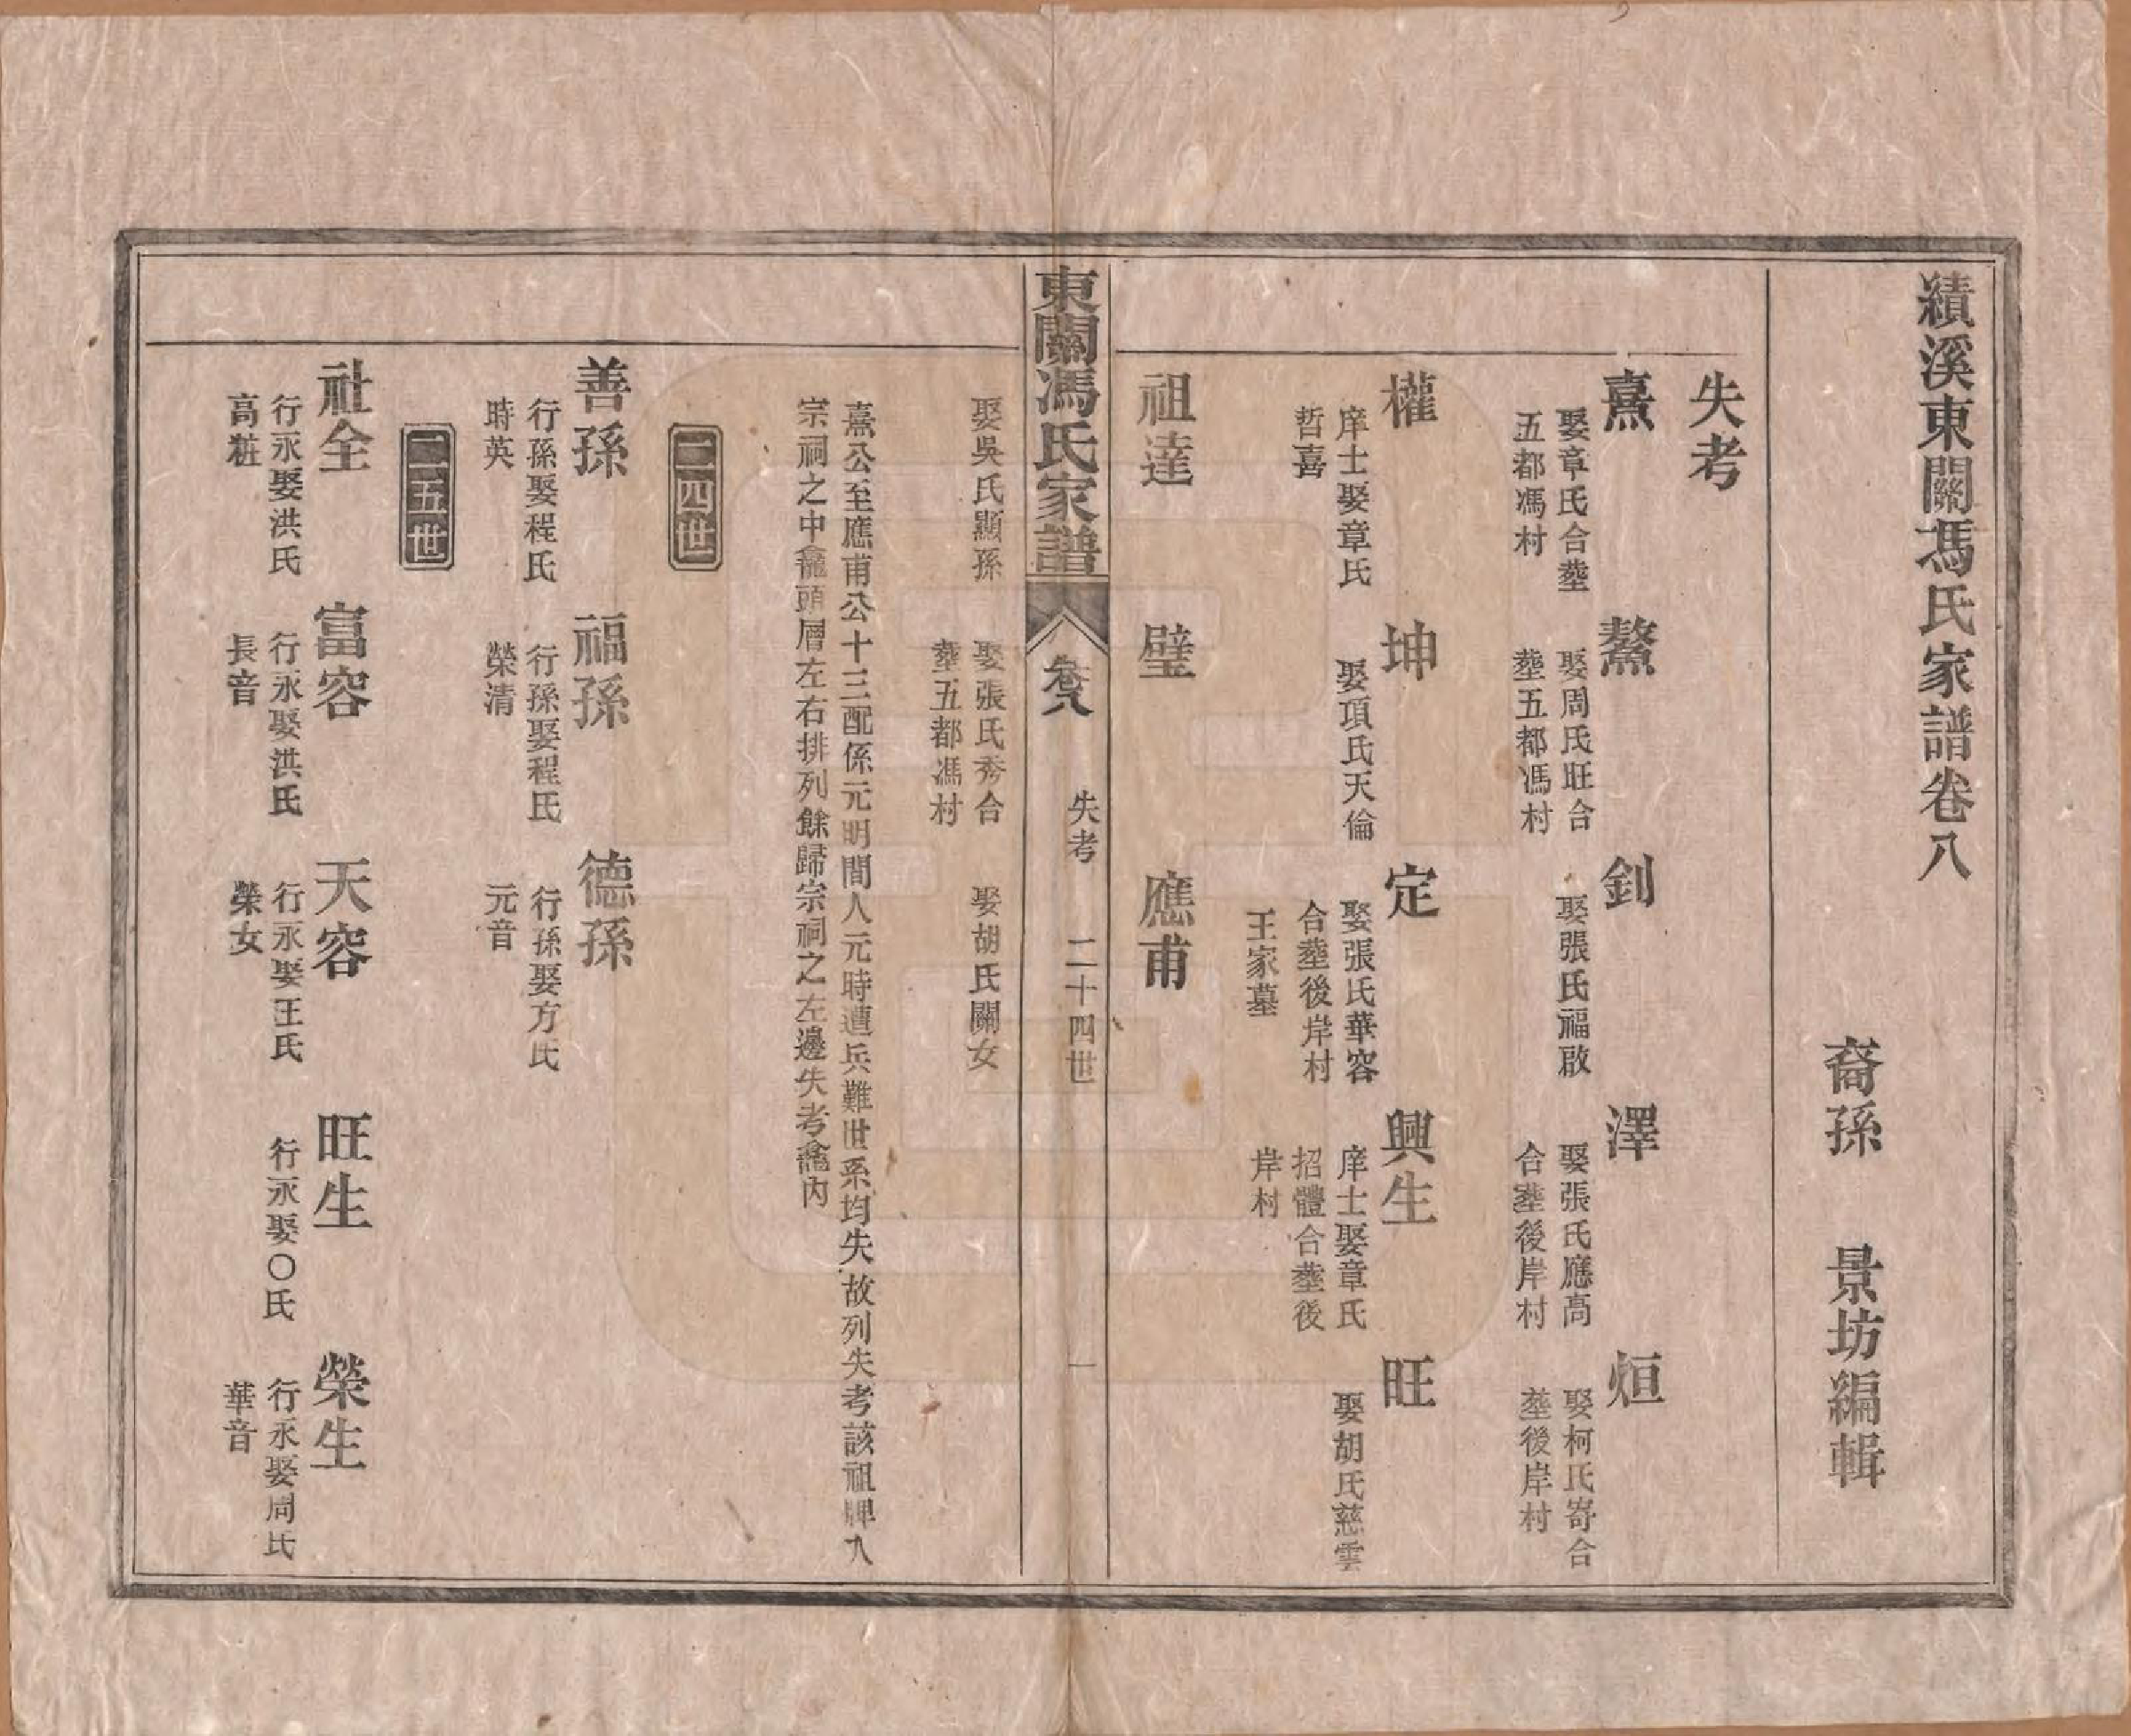 績溪東關馮氏家譜卷八
裔孫 景坊編輯
失考
熹
娶章氏合塟
五都馮村
鰲
娶周氏旺合
塟五都馮村
釗
娶張氏福啟
澤
娶張氏應高
合塟後岸村
烜
娶柯氏寄合
塟後岸村
權
庠士娶章氏
哲喜
坤
娶項氏天倫
定
娶張氏華容
合塟後岸村
王家墓
興生
庠士娶章氏
招體合塟後
岸村
旺
娶胡氏慈雲
祖達
璧
應甫
東關馮氏家譜
卷八
失考
二十四世
一
娶吳氏顯孫
娶張氏秀合
塟五都馮村
娶胡氏關女
熹公至應甫公十三配係元明間人元時遭兵難世系均失故列失考該祖牌入
宗祠之中龕頭層左右排列餘歸宗祠之左邊失考龕內
二四世
善孫
行孫娶程氏
時英
福孫
行孫娶程氏
榮清
德孫
行孫娶方氏
元音
二五世
社全
行永娶洪氏
高粧
富容
行永娶洪氏
長音
天容
行永娶王氏
榮女
旺生
行永娶〇氏
榮生
行永娶周氏
華音